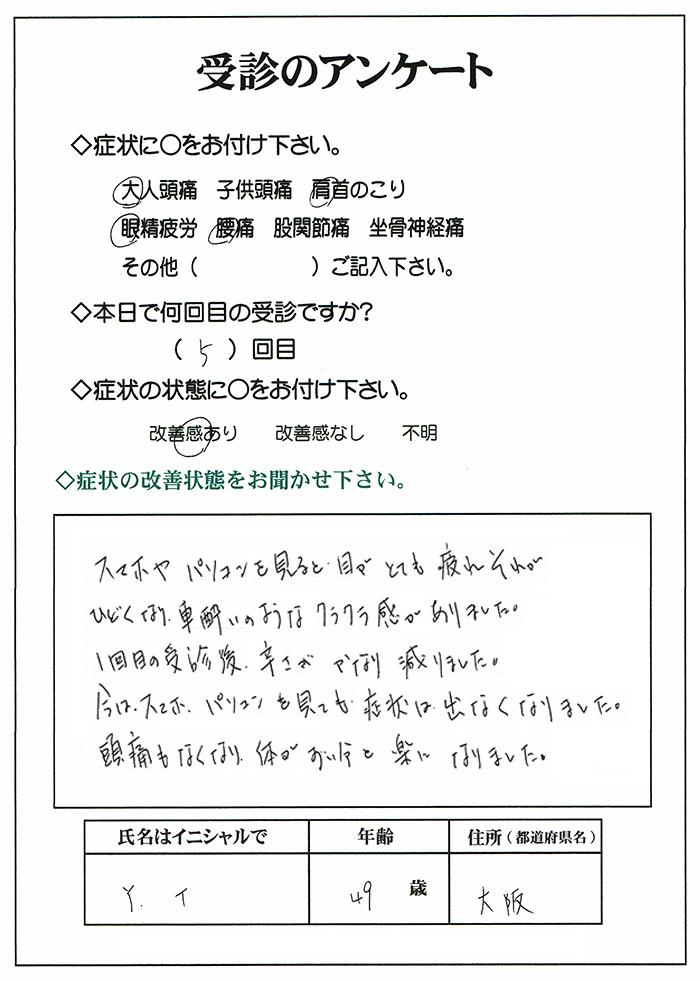 受診のアンケート
◇症状に○をお付け下さい。
大人頭痛　子供頭痛　肩首のこり
眼精疲労　腰痛　股関節痛　坐骨神経痛
その他（　　　　　　）ご記入下さい。
◇本日で何回目の受診ですか?
（ 5 ）回目
◇症状の状態に○をお付け下さい。
改善感あり　　改善感なし　　不明
◇症状の改善状態をお聞かせ下さい。
スマホや パソコンを見ると 目が とても 疲れ それが
ひどくなり、車酔いのような クラクラ感がありました。
1回目の受診後、辛さが かなり 減りました。
今は、スマホ、パソコン を見ても 症状は 出なくなりました。
頭痛もなくなり、体が ずい分と 楽に なりました。
氏名はイニシャルで　年齢　住所（都道府県名）
Y. T　49 歳　大阪